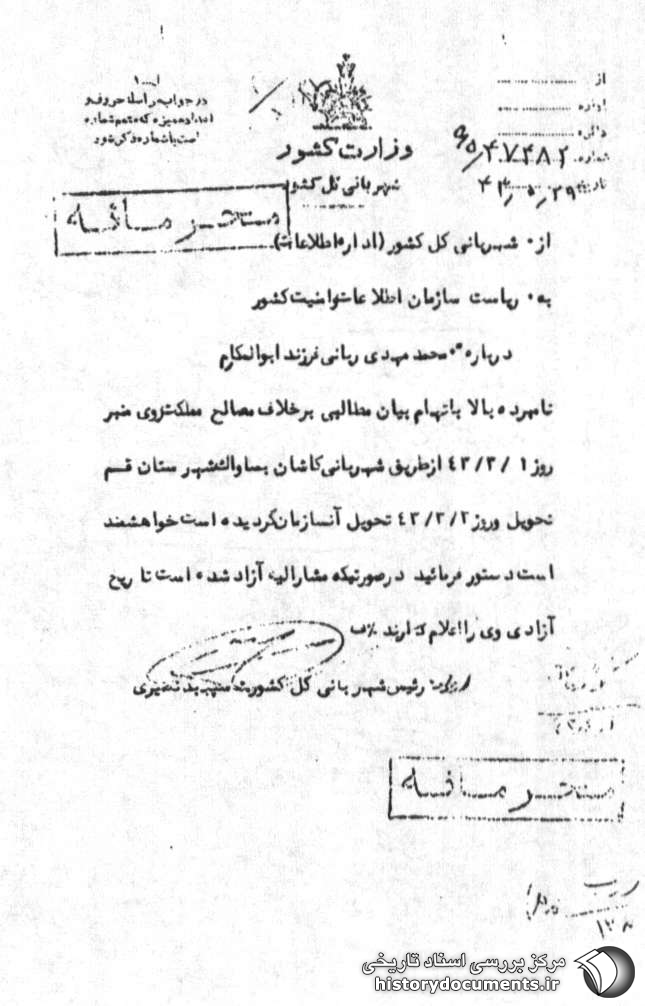 از
اداره
دائره
شماره ۴۰۷۴۸۲/۹۵
تاریخ ۴۳/۵/۲۹
در جواب مراسله حروف و
اعداد ممیزه که متمم شماره
است با شماره ذکر شود
وزارت کشور
شهربانی کل کشور
محرمانه
از: شهربانی کل کشور (اداره اطلاعات)
به: ریاست سازمان اطلاعات و امنیت کشور
درباره: محمد مهدی ربانی فرزند ابوالمکارم
نامبرده بالا باتهام بیان مطالبی برخلاف مصالح مملکت روی منبر
روز ۱/۳/۴۳ از طریق شهربانی کاشان بساواک شهرستان قم
تحویل و روز ۲/۳/۴۳ تحویل آنسازمان گردیده است خواهشمند
است دستور فرمائید در صورتیکه مشارالیه آزاد شده است تاریخ
آزادی وی را اعلام دارند
رئیس شهربانی کل کشور سپهبد نصیری
محرمانه
مرکز بررسی اسناد تاریخی
historydocuments.ir